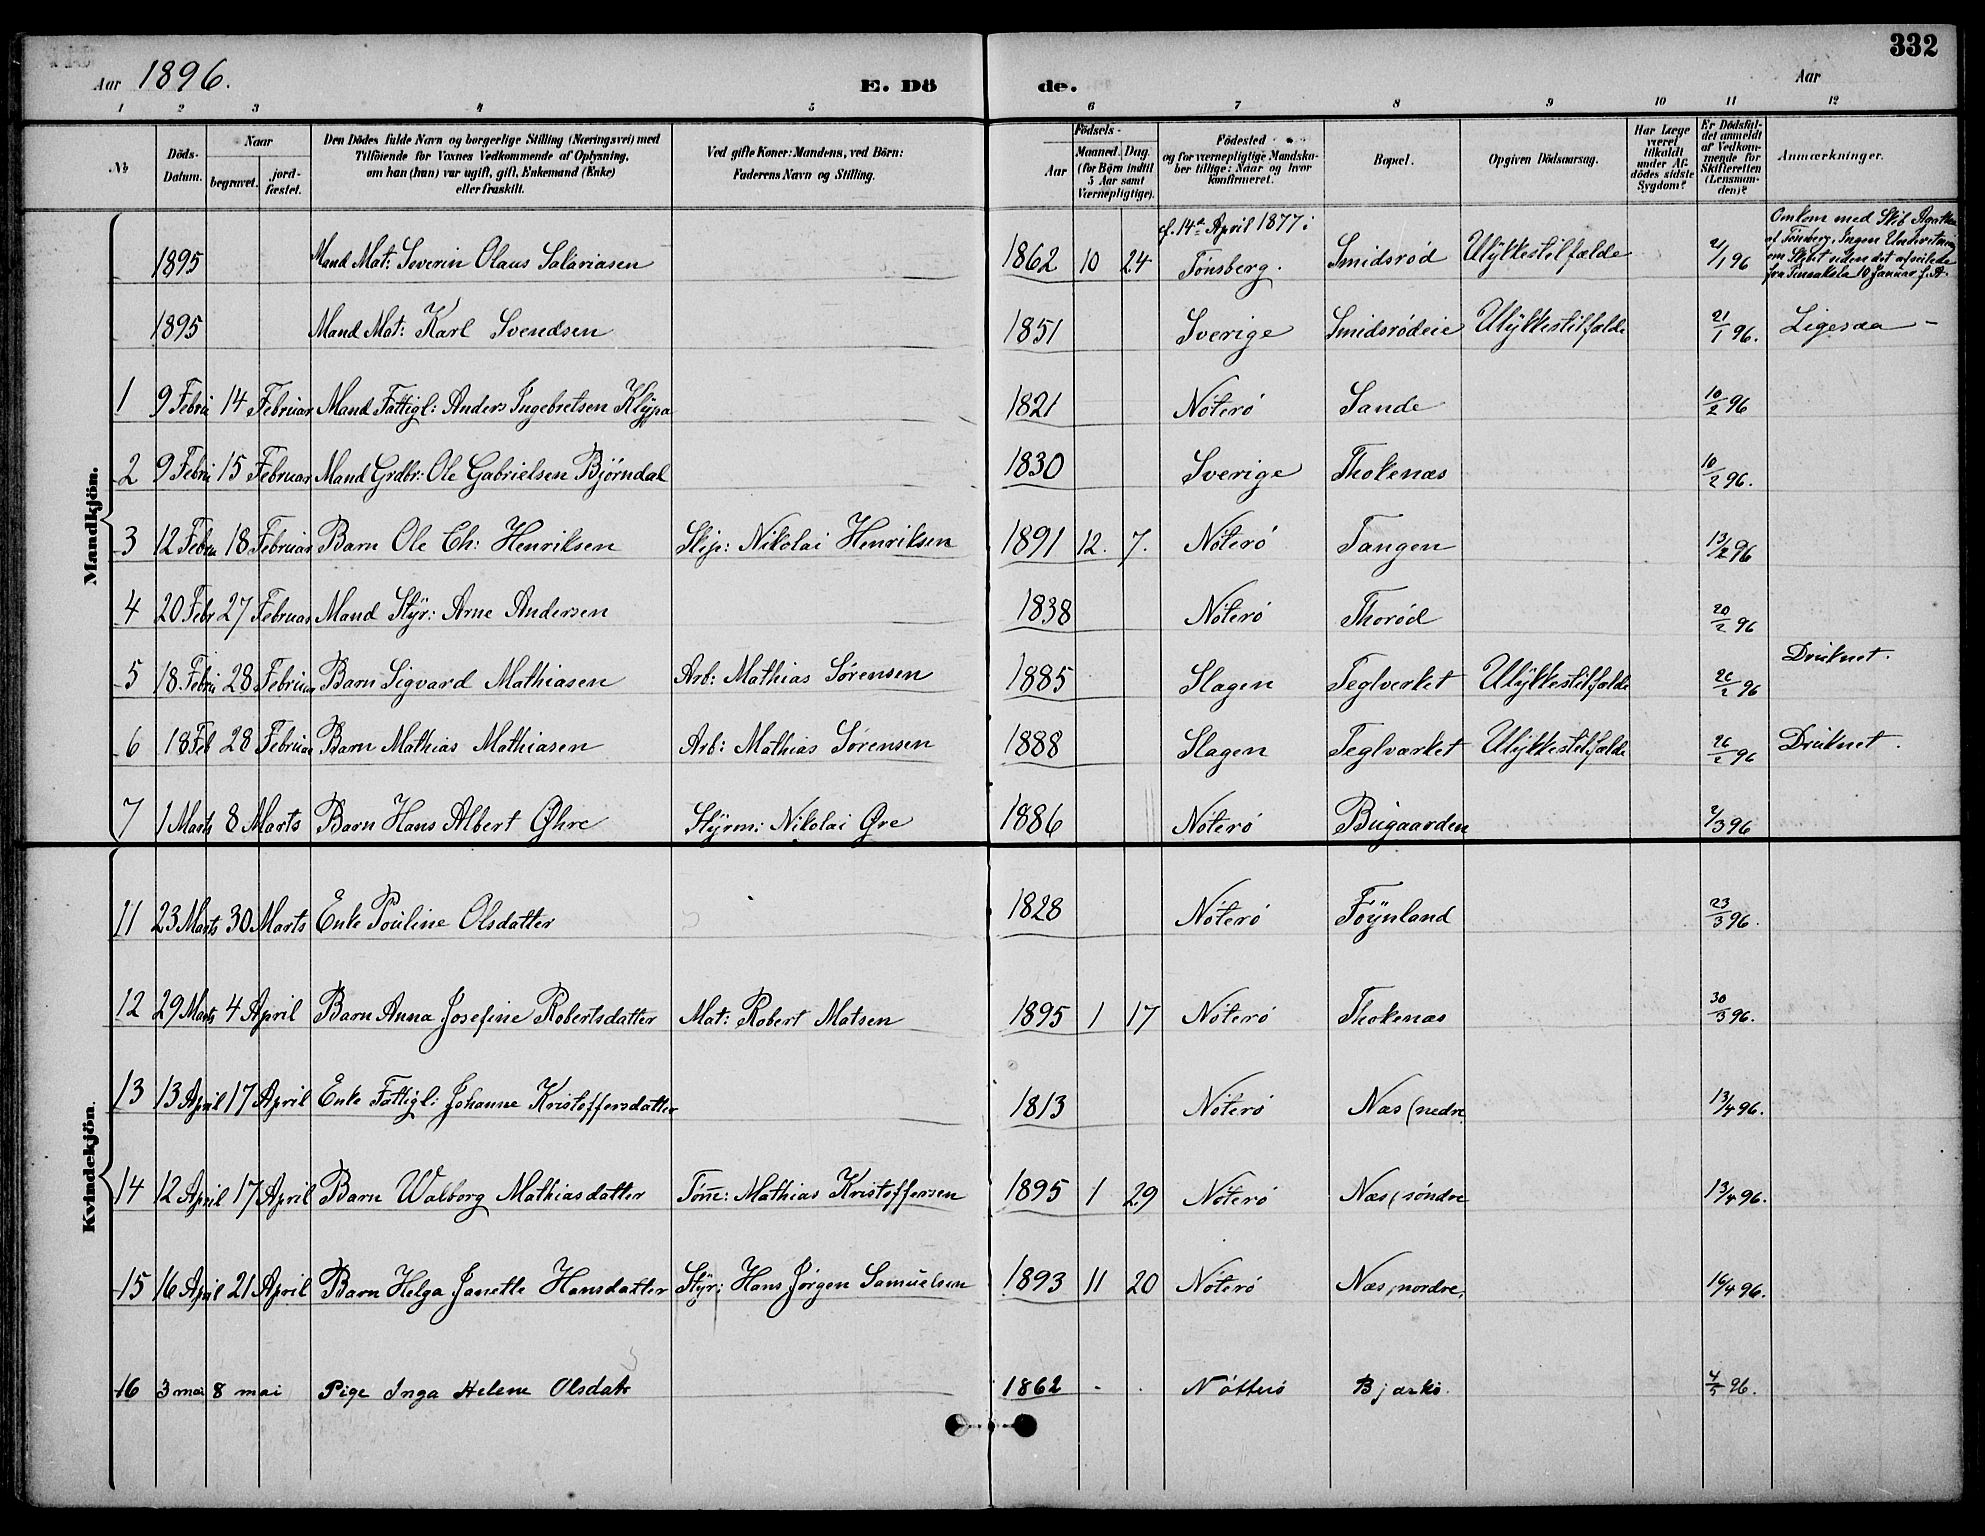 332
Aar 1896. E. Dö de. Aar
1 2 3 4 5 6 7 8 9 10 11 12
№ Döds-Datum. Naar begravet. jord-fæstet. Den Dödes fulde Navn og borgerlige Stilling (Næringsvei) med Tilföiende for Voxnes Vedkommende af Oplysning, om han (hun) var ugift, gift, Enkemand (Enke) eller fraskilt. Ved gifte Koner: Mandens, ved Börn: Faderens Navn og Stilling. Födsels- Aar Maaned. Dag (for Börn indtil 5 Aar samt Værnepligtige). Födested og for værnepligtige Mandskaber tillige: Naar og hvor konfirmeret. Bopæl. Opgiven Dödsaarsag. Har Læge været tilkaldt under Afdödes sidste Sygdom? Er Dödsfaldet anmeldt af Vedkommende for Skifteretten (Lensmanden)? Anmærkninger.
Mandkjön.
1895 Mand Mat: Severin Olaus Salariasen 1862 10 24 cf. 14de April 1877: Tønsberg. Smidsrød Ulykkestilfælde 21/1 96 Omkom med Skib Agathe af Tønsberg. Ingen Underretning om Skibet siden det afseilede fra Pensakola 10 Januar f. A.
1895 Mand Mat: Karl Svendsen 1851 Sverige Smidsrødeie Ulykkestilfælde 21/1 96. Ligesaa -
1 9 Febru 14 Februar Mand Fattigl: Anders Ingebretsen Klypa 1821 Nøterø Sande 10/2 96
2 9 Febru 15 Februar Mand Grdbr: Ole Gabrielsen Bjørndal 1830 Sverige Thokenæs 10/2 96.
3 12 Febru 18 Februar Barn Ole Ch: Henriksen Skip: Nikolai Henriksen 1891 12. 7. Nøterø Tangen 13/2 96
4 20 Febr 27 Februar Mand Styr: Arne Andersen 1838 Nøterø Thorød 20/2 96
5 18. Febru 28 Februar Barn Sigvard Mathiasen Arb: Mathias Sørensen 1885 Slagen Teglverket Ulykkestilfælde 26/2 96 Druknet.
6 18 Feb 28 Februar Barn Mathias Mathiasen Arb: Mathias Sørensen 1888 Slagen Teglværket Ulykkestilfælde 26/2 96 Druknet.
7 1 Marts 8 Marts Barn Hans Albert Øhre Styrm: Nikolai Øre 1886 Nøterø Bugaarden 2/3 96
Kvindekjön.
11 23 Marts 30 Marts Enke Pouline Olsdatter 1828 Nøterø Föynland 23/3 96.
12 29 Marts 4 April Barn Anna Josefine Robertsdatter Mat: Robert Matsen 1895 1 17 Nøterø Thokenæs 30/3 96.
13 13 April 17 April Enke Fattigl: Johanne Kristoffersdatter 1813 Nøterø Næs (nedre 13/4 96.
14 12 April 17 April Barn Walborg Mathiasdatter Töm: Mathias Kristoffersen 1895 1 29 Nøterø Næs (søndre 13/4 96.
15 16 April 21 April Barn Helga Janette Hansdatter Styr: Hans Jørgen Samuelsen 1893 11 20 Nøterø Næs, nordre. 16/4 96.
16 3 mai 8 mai Pige Inga Helene Olsdatr 1862 - . Nøtterø Bjærkø. 4/5 96.